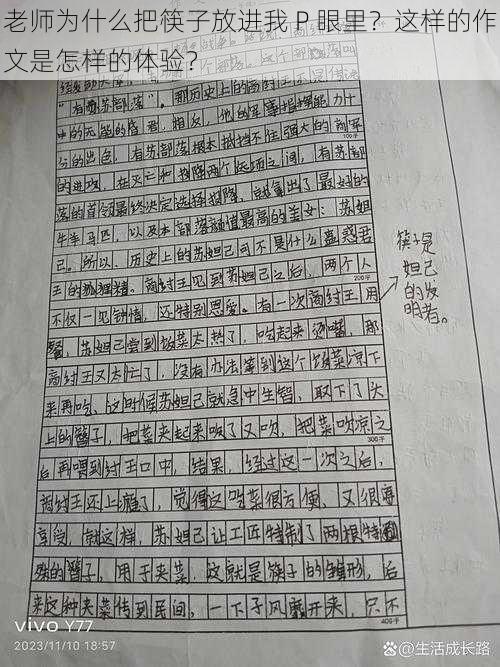 老师为什么把筷子放进我 P 眼里？这样的作
文是怎样的体验？
作 文
"有苏部落"。那历史上的商纣王还是很
中的无能的昏君，相反，他的军事指挥能力十
分的出色，有苏部落根本抵挡不住强大的商军
100字
的进攻，在灭亡和投降两个选项之间，有苏部
落的首领最终决定选择投降，就拿出了最好的
牛羊马匹，以及本部落颜值最高的美女：苏妲
己。所以，历史上的苏妲己可不是什么蛊惑君
王的狐狸精。商纣王见到苏妲己之后，两个人
200字
不仅一见钟情，还特别恩爱。有一次商纣王用
餐，苏妲己尝到饭菜太热了，吃起来烫嘴，那
商纣王又太忙了，没有办法等到这个饭菜凉下
来再吃，这时候苏妲己就急中生智，取下了头
上的簪子，把菜夹起来吹了又吹，把菜吹凉之
300字
后再喂到纣王口中，结果，经过这一次之后，
商纣王还上瘾了，觉得这吃菜很方便，又很享
享受，就这样，苏妲己让工匠特制了两根特
殊的簪子，用于夹菜，这就是筷子的雏形，后
来这种夹菜传到民间，一下子风靡开来，只不
400字
筷子是
妲己
的发
明者。
vivo Y77
2023/11/10 18:57
@生活成长路